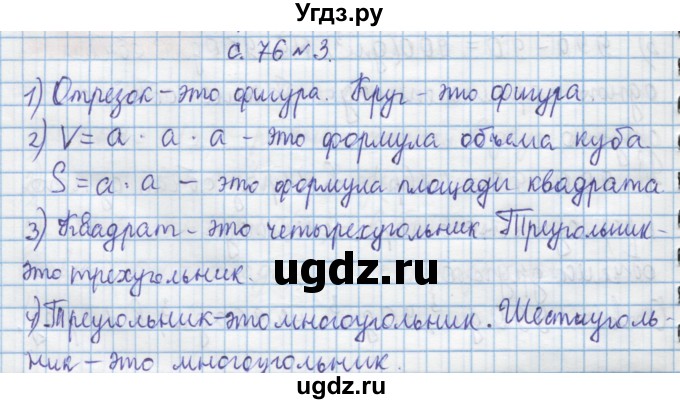 Угдз.ру
с. 76 №3.
1) Отрезок – это фигура. Круг – это фигура.
2) V = a · a · a – это формула объема куба
S = a · a – это формула площади квадрата
3) Квадрат – это четырехугольник. Треугольник –
это трехугольник.
ugdz.ru
4) Треугольник – это многоугольник. Шестиуголь-
ник – это многоугольник.
ugdz.ru
ugdz.ru